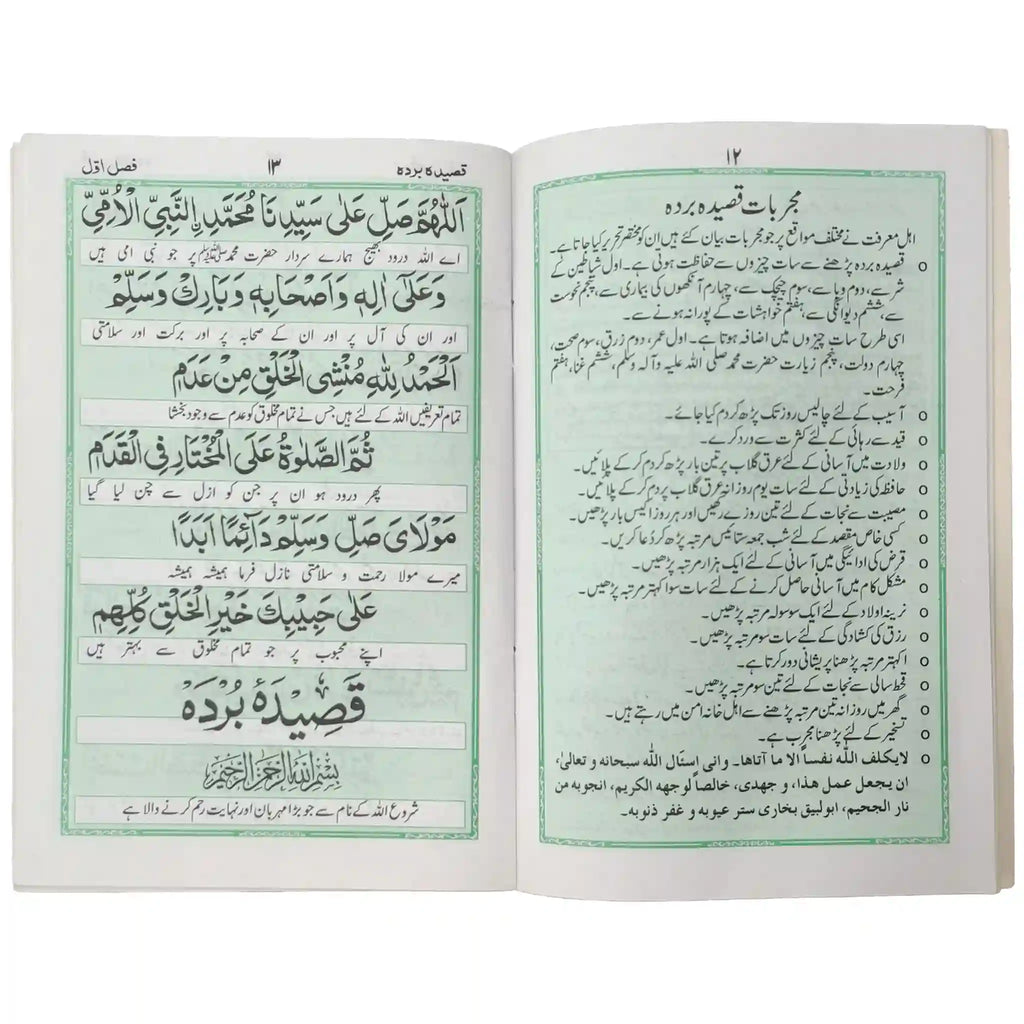 ۱۲
مجربات قصیدہ بردہ
اہل معرفت نے مختلف مواقع پر جو مجربات بیان کئے ہیں ان کو مختصر تحریر کیا جاتا ہے۔
o قصیدہ بردہ پڑھنے سے سات چیزوں سے حفاظت ہوتی ہے۔ اول شیاطین کے
شر سے، دوم وبا سے، سوم چیچک سے، چہارم آنکھوں کی بیماری سے، پنجم نحوست
سے، ششم دیوانگی سے، ہفتم خواہشات کے پورا نہ ہونے سے۔
اسی طرح سات چیزوں میں اضافہ ہوتا ہے۔ اول عمر، دوم زرق، سوم صحت،
چہارم دولت، پنجم زیارت حضرت محمد صلی اللہ علیہ وآلہ وسلم، ششم غنا، ہفتم
فرحت۔
o آسیب کے لئے چالیس روز تک پڑھ کر دم کیا جائے۔
o قید سے رہائی کے لئے کثرت سے ورد کرے۔
o ولادت میں آسانی کے لئے عرق گلاب پر تین بار پڑھ کر دم کر کے پلائیں۔
o حافظہ کی زیادتی کے لئے سات یوم روزانہ عرق گلاب پر دم کر کے پلائیں۔
o مصیبت سے نجات کے لئے تین روزے رکھیں اور ہر روز اکیس بار پڑھیں۔
o کسی خاص مقصد کے لئے شب جمعہ ستائیس مرتبہ پڑھ کر دُعا کریں۔
o قرض کی ادائیگی میں آسانی کے لئے ایک ہزار مرتبہ پڑھیں۔
o مشکل کام میں آسانی حاصل کرنے کے لئے سات سو اکہتر مرتبہ پڑھیں۔
o نرینہ اولاد کے لئے ایک سو سولہ مرتبہ پڑھیں۔
o رزق کی کشادگی کے لئے سات سو مرتبہ پڑھیں۔
o اکہتر مرتبہ پڑھنا پریشانی دور کرتا ہے۔
o قحط سالی سے نجات کے لئے تین سو مرتبہ پڑھیں۔
o گھر میں روزانہ تین مرتبہ پڑھنے سے اہل خانہ امن میں رہتے ہیں۔
o تسخیر کے لئے پڑھنا مجرب ہے۔
o لایکلف اللّٰه نفساً الا ما آتاها۔ وانی اسئال اللّٰه سبحانه و تعالیٰ،
ان یجعل عمل هذا، و جهدی، خالصاً لوجهه الکریم، انجوبه من
نار الجحیم، ابولبیق بخاری ستر عیوبه و غفر ذنوبه۔
قصیدہ بردہ ۱۳ فصل اوّل
اَللّٰهُمَّ صَلِّ عَلٰى سَيِّدِنَا مُحَمَّدِ ۨالنَّبِيِّ الْاُمِّيِّ
اے اللہ درود بھیج ہمارے سردار حضرت محمد ﷺ پر جو نبی امی ہیں
وَعَلٰى اٰلِهٖ وَاَصْحَابِهٖ وَبَارِكْ وَسَلِّمْ
اور ان کی آل پر اور ان کے صحابہ پر اور برکت اور سلامتی
اَلْحَمْدُ لِلّٰهِ مُنْشِى الْخَلْقِ مِنْ عَدَمِ
تمام تعریفیں اللہ کے لئے ہیں جس نے تمام مخلوق کو عدم سے وجود بخشا
ثُمَّ الصَّلٰوةُ عَلَى الْمُخْتَارِ فِى الْقَدَمِ
پھر درود ہو ان پر جن کو ازل سے چن لیا گیا
مَوْلَاىَ صَلِّ وَسَلِّمْ دَآئِمًا اَبَدًا
میرے مولا رحمت و سلامتی نازل فرما ہمیشہ ہمیشہ
عَلٰى حَبِيْبِكَ خَيْرِ الْخَلْقِ كُلِّهِمٖ
اپنے محبوب پر جو تمام مخلوق سے بہتر ہیں
قَصِیْدَهٔ بُرْدَه
بِسْمِ اللهِ الرَّحْمٰنِ الرَّحِيْمِ
شروع اللہ کے نام سے جو بڑا مہربان اور نہایت رحم کرنے والا ہے